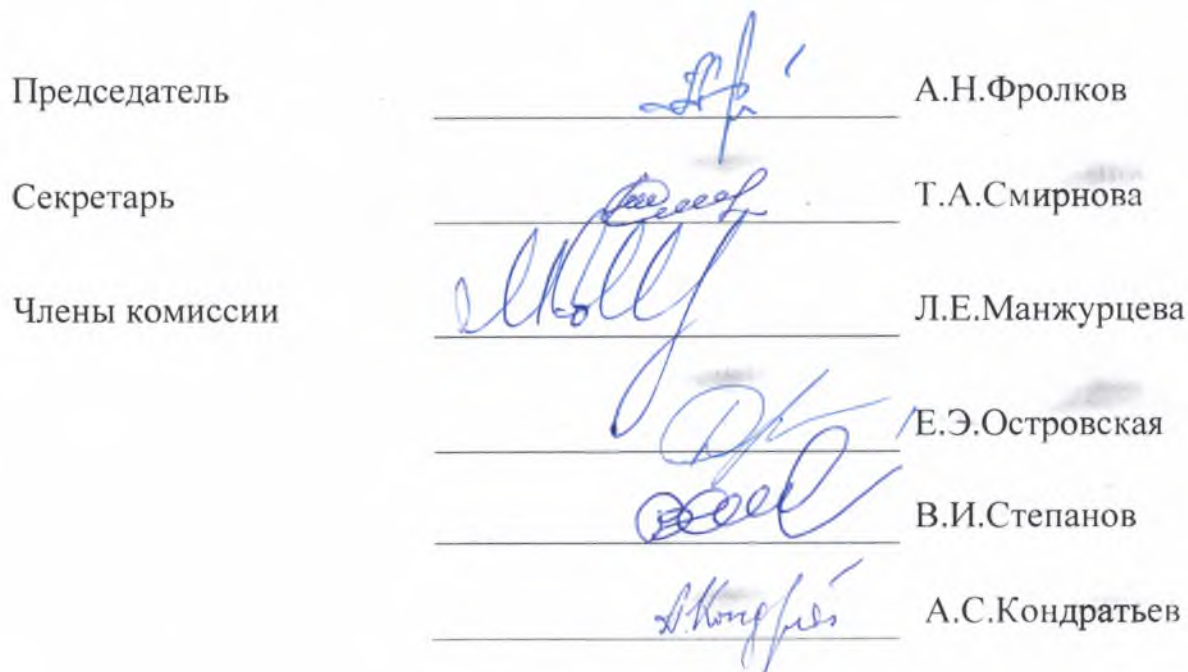 Председатель А.Н.Фролков
Секретарь Т.А.Смирнова
Члены комиссии Л.Е.Манжурцева
Е.Э.Островская
В.И.Степанов
А.С.Кондратьев